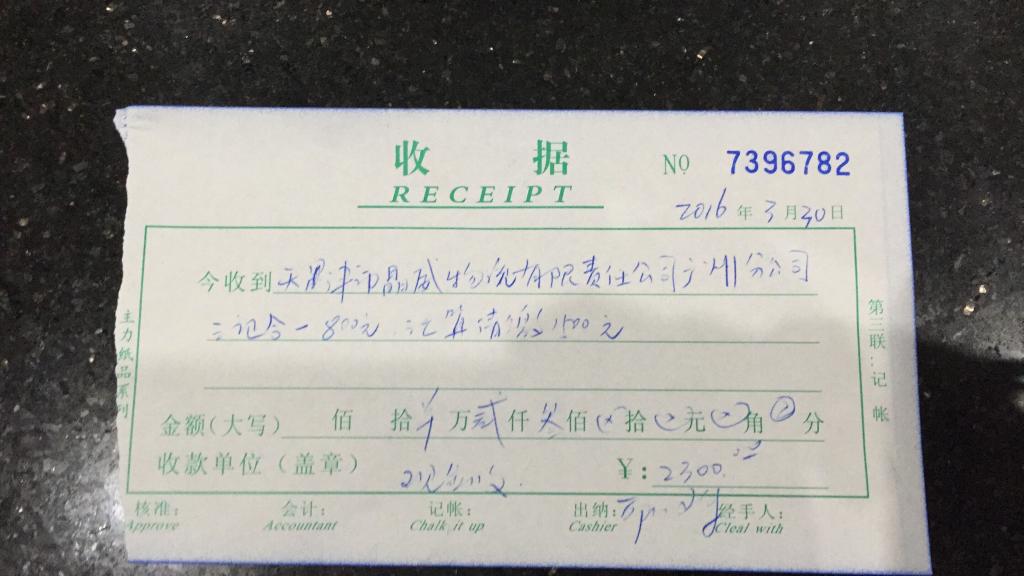 收 据
RECEIPT
NO 7396782
2016年3月30日
今收到天津市晶威物流有限责任公司广州分公司
一800元 1500元
金额(大写) 佰 拾 万贰仟 佰 拾 元 角 分
收款单位(盖章) ¥:2300.
核准: 会计: 记帐: 出纳: 经手人:
Approve Accountant Chalk it up Cashier Cleal with
主力纸品系列
第三联:记帐